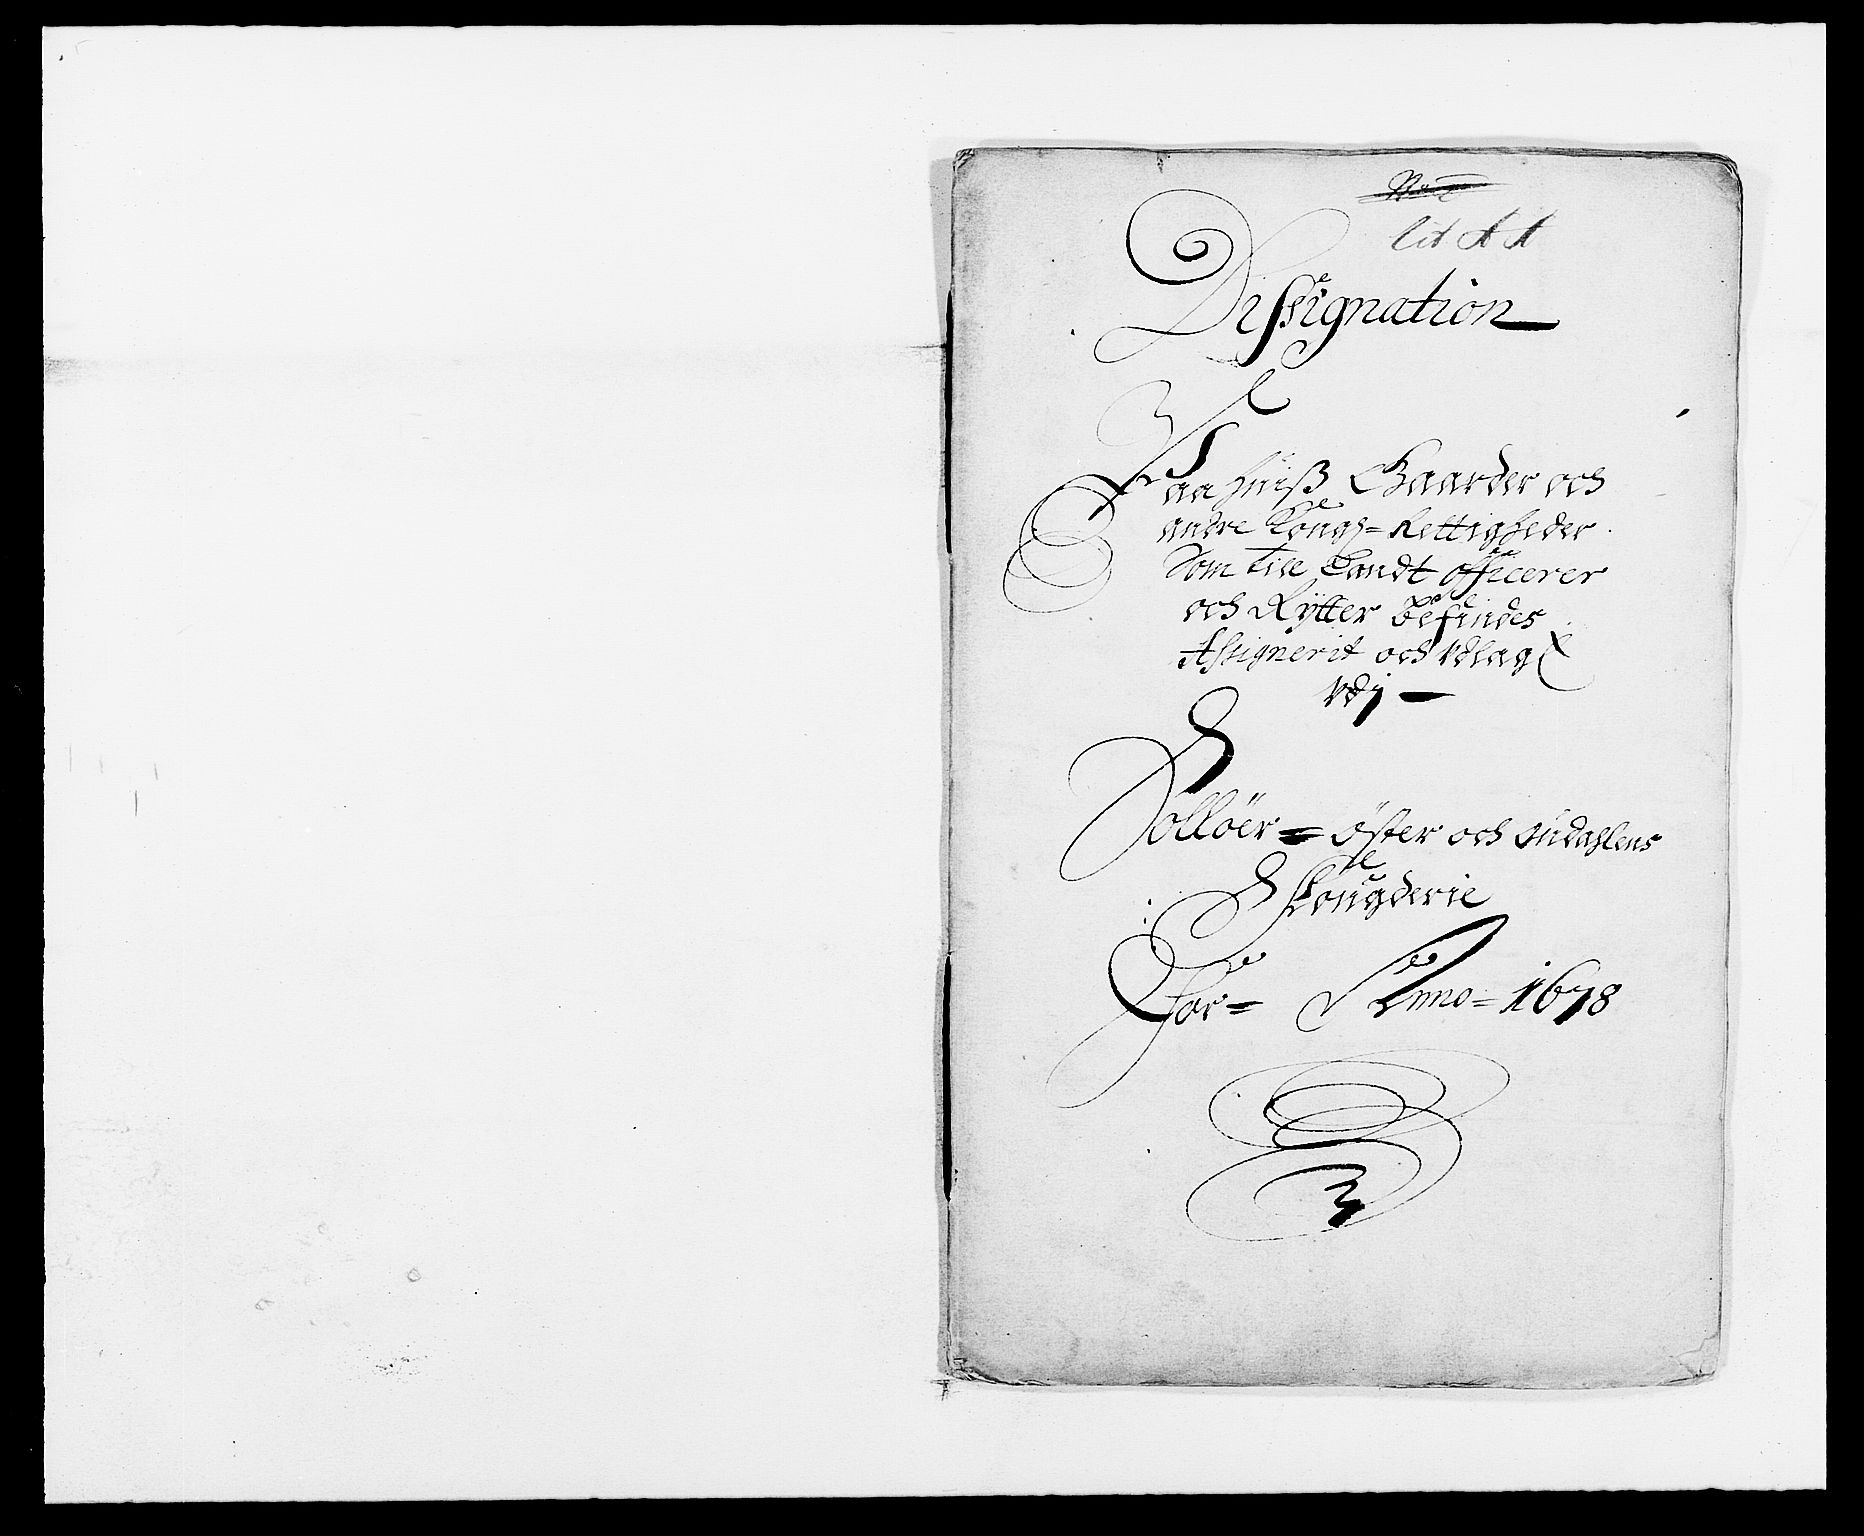 lit A A
Dissignation
Paa huiß Gaarder och
andre Kong=Rettigheder
Som till Landt officerer
och Rÿtter befindes
Assignerit och Udlagt
Udj
Sollöer= öster och Oudahlens
Fougderie
For= Anno= 1678